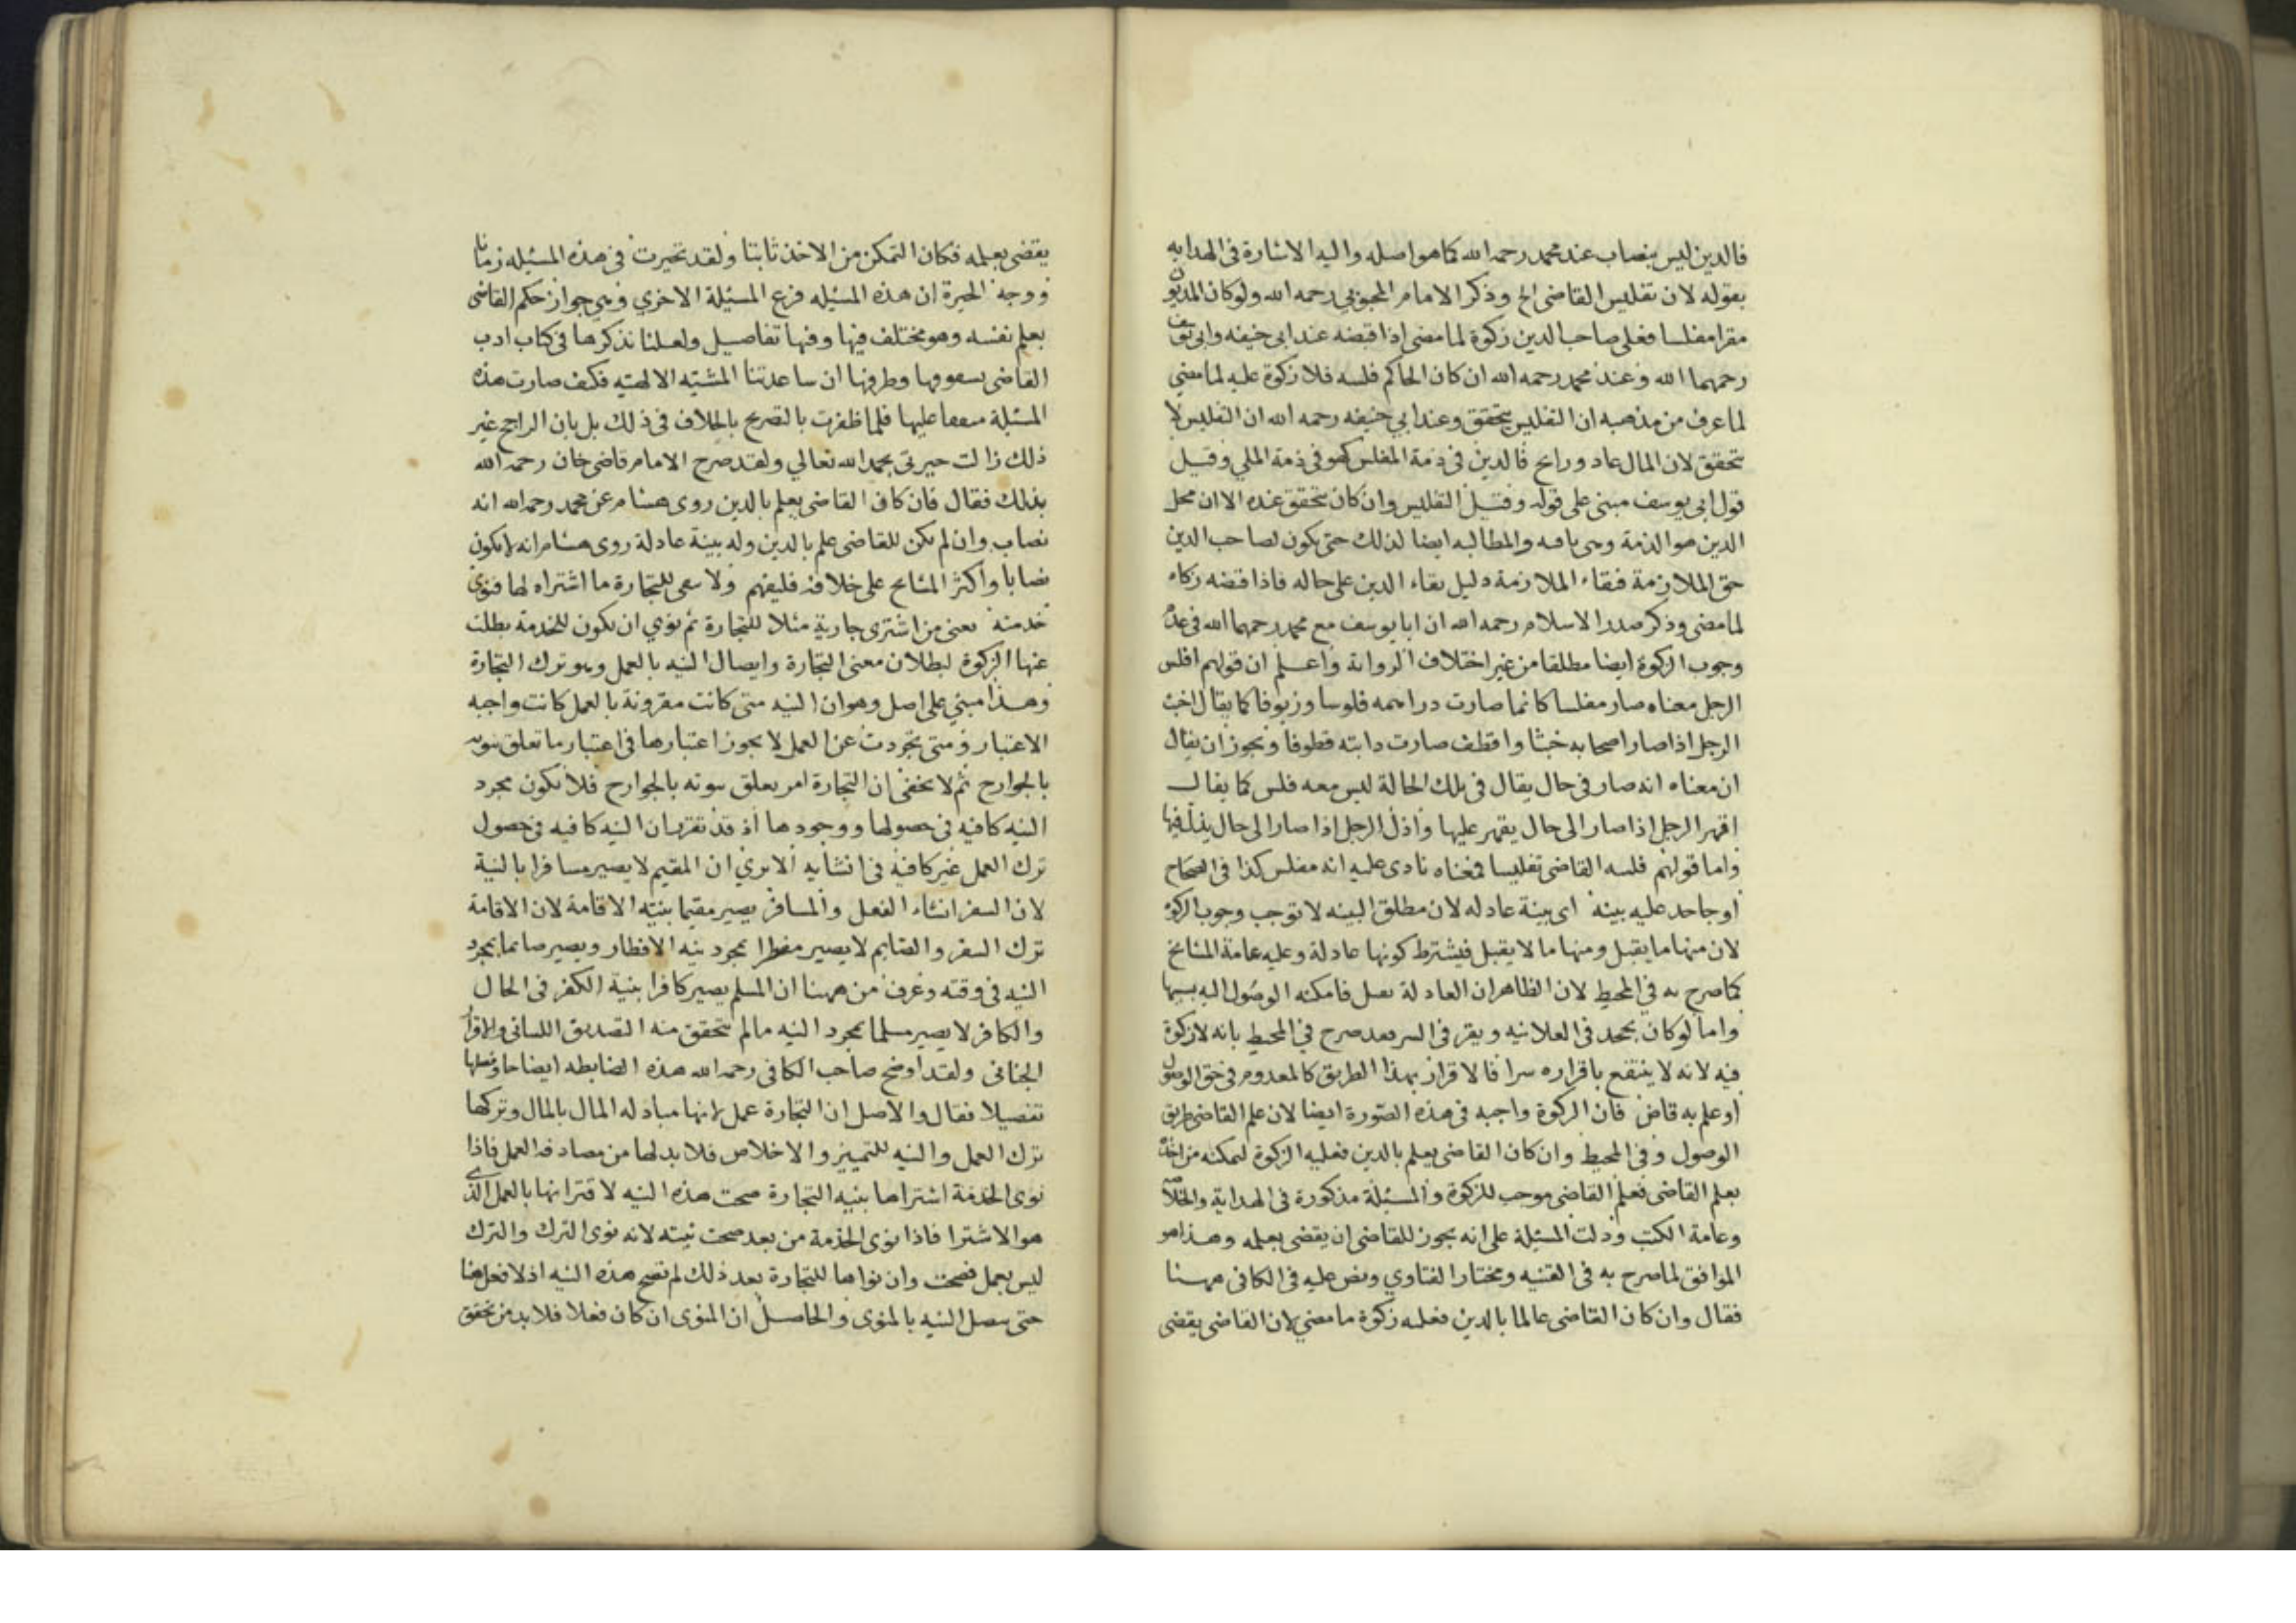 فالدين ليس بنصاب عند محمد رحمه الله كما هو اصله واليه الاشارة فى الهدايه
بقوله لان تفليس القاضى الخ وذكر الامام المحبوبي رحمه الله ولو كان المديون
مقرا مفلسا فعلى صاحب الدين زكوة لما مضى اذا قبضه عند ابى حنيفه وابى يوسف
رحمهما الله وعند محمد رحمه الله ان كان الحاكم فلسه فلا زكوة عليه لما مضى
لما عرف من مذهبه ان التفليس يتحقق وعند ابي حنيفه رحمه الله ان التفليس لا
يتحقق لان المال غاد ورايح فالدين فى ذمة المفلس كهو فى ذمة الملي وقيل
قول ابى يوسف مبنى على قوله وقيل التفليس وان كان يتحقق عنده الا ان محل
الدين هو الذمة وهى باقيه والمطالبه ايضا لذلك حتى يكون لصاحب الدين
حق الملازمة فبقاء الملازمة دليل بقاء الدين على حاله فاذا قبضه زكاه
لما مضى وذكر صدر الاسلام رحمه الله ان ابا يوسف مع محمد رحمهما الله فى عدم
وجوب الزكوة ايضا مطلقا من غير اختلاف الرواية واعلم ان قولهم افلس
الرجل معناه صار مفلسا كانما صارت دراهمه فلوسا وزيوفا كما يقال اخبث
الرجل اذا صار اصحابه خبثا واقطف صارت دابته قطوفا ويجوز ان يقال
ان معناه انه صار فى حال يقال فى تلك الحالة ليس معه فلس كما يقال
اقهر الرجل اذا صار الى حال يقهر عليها واذل الرجل اذا صار الى حال يذل فيها
واما قولهم فلسه القاضى تفليسا فمعناه نادى عليه انه مفلس كذا فى الصحاح
او جاحد عليه بينه اى بينة عادله لان مطلق البينه لا توجب وجوب الزكوة
لان منها ما يقبل ومنها ما لا يقبل فيشترط كونها عادلة وعليه عامة المشايخ
كما صرح به في المحيط لان الظاهر ان العادلة تقبل فامكنه الوصول اليه بسببها
واما لو كان يجحد فى العلانيه ويقر فى السر فقد صرح في المحيط بانه لا زكوة
فيه لانه لا ينتفع باقراره سرا فالاقرار بهذا الطريق كالمعدوم فى حق الوصول
او علم به قاض فان الزكوة واجبه فى هذه الصورة ايضا لان علم القاضى طريق
الوصول وفى المحيط وان كان القاضى يعلم بالدين فعليه الزكوة لتمكنه من اخذه
بعلم القاضى فعلم القاضى موجب للزكوة والمسئلة مذكورة فى الهداية والخلاصة
وعامة الكتب ودلت المسئلة على انه يجوز للقاضى ان يقضى بعلمه وهذا هو
الموافق لما صرح به فى القنيه ومختار الفتاوي ونص عليه فى الكافى ههنا
فقال وان كان القاضى عالما بالدين فعليه زكوة ما مضى لان القاضى يقضى
يقضى بعلمه فكان التمكن من الاخذ ثابتا ولقد تحيرت فى هذه المسئله زمانا
ووجه الحيرة ان هذه المسئله فرع المسئلة الاخري وهي جواز حكم القاضى
بعلم نفسه وهو مختلف فيها وفيها تفاصيل ولعلنا نذكرها فى كتاب ادب
القاضى بشعوبها وطرقها ان ساعدتنا المشيئه الالهيه فكيف صارت هذه
المسئلة متفقا عليها فلما ظفرت بالتصريح بالخلاف فى ذلك بل بان الراجح غير
ذلك زالت حيرتى بحمد الله تعالي ولقد صرح الامام قاضى خان رحمه الله
بذلك فقال فان كان القاضى يعلم بالدين روى هشام عن محمد رحمه الله انه
نصاب وان لم يكن للقاضى علم بالدين وله بينة عادلة روى هشام انه لا يكون
نصابا واكثر المشايخ على خلافه فليفهم ولا يبقى للتجارة ما اشتراه لها فنوى
خدمته يعنى من اشترى جارية مثلا للتجارة ثم نوي ان يكون للخدمة بطلت
عنها الزكوة لبطلان معنى التجارة وايصال النيه بالعمل وهو ترك التجارة
وهذا مبني على اصل وهو ان النيه متى كانت مقرونة بالعمل كانت واجبه
الاعتبار ومتى تجردت عن العمل لا يجوز اعتبارها فى اعتبار ما تعلق ثبوته
بالجوارح ثم لا يخفى ان التجارة امر يعلق ثبوته بالجوارح فلا يكون مجرد
النيه كافيه فى حصولها ووجودها اذ قد تقرر ان النيه كافيه فى حصول
ترك العمل غير كافية فى انشايه الا تري ان المقيم لا يصير مسافرا بالنية
لان السفر انشاء الفعل والمسافر يصير مقيما بنيته الاقامة لان الاقامة
ترك السفر والصايم لا يصير مفطرا بمجرد نيه الافطار ويصير صائما بمجرد
النيه فى وقته وعرف من ههنا ان المسلم يصير كافرا بنية الكفر فى الحال
والكافر لا يصير مسلما بمجرد النيه ما لم يتحقق منه التصديق اللسانى والاقرار
الجنانى ولقد اوضح صاحب الكافى رحمه الله هذه الضابطه ايضاحا وفصلها
تفصيلا فقال والاصل ان التجارة عمل لانها مبادله المال بالمال وتركها
ترك العمل والنيه للتمييز والاخلاص فلا بد لها من مصادفه العمل فاذا
نوى الخدمة اشتراها بنيه التجارة صحت هذه النيه لاقترانها بالعمل الذى
هو الاشترا فاذا نوى الخدمة من بعد صحت نيته لانه نوى الترك والترك
ليس بعمل فصحت وان نواها للتجارة بعد ذلك لم تصح هذه النيه اذ لا فعل هنا
حتى يتصل النيه بالمنوى والحاصل ان المنوى ان كان فعلا فلا بد من تحقق